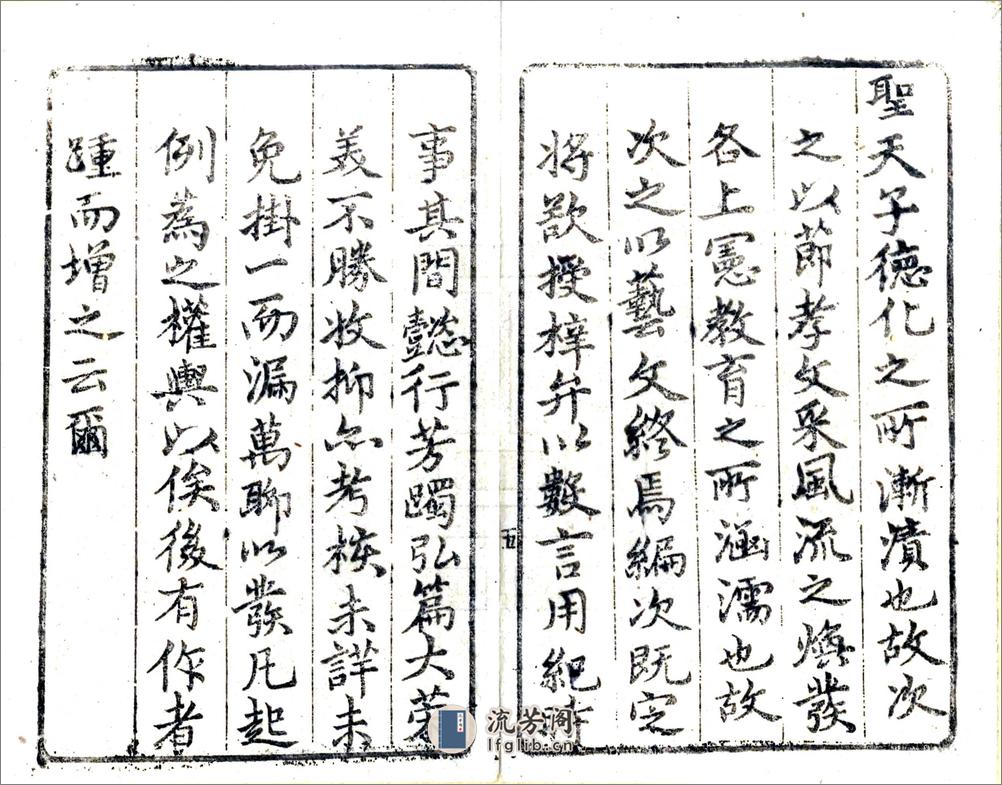 聖天子德化之所漸漬也故次
之以節孝文采風流之煥發
各上憲教育之所涵濡也故
次之以藝文終焉編次既定
將欲授梓弁以數言用紀
五
事其間懿行芳躅弘篇大
美不勝收抑亦考核未詳未
免掛一而漏萬聊以發凡起
例為之權輿以俟後有作者
踵而增之云爾
流芳阁
lfglib.cn